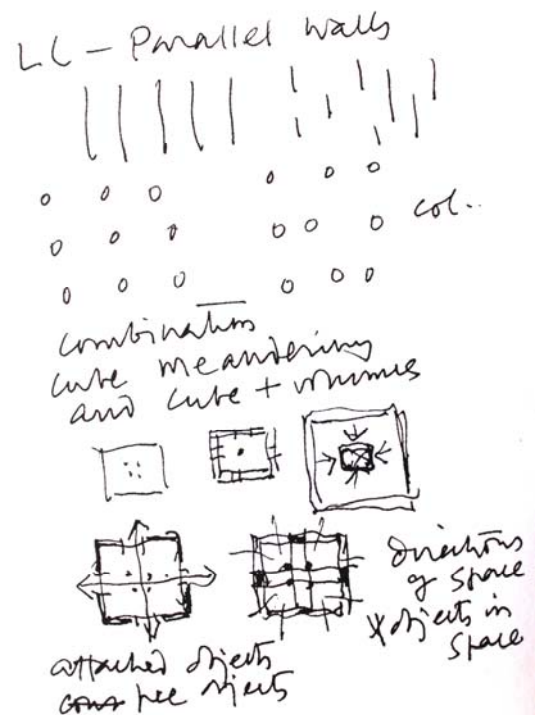 LC - Parallel walls
col..
combination
cube meandering
and cube + volumes
directions
of space
objects in
space
attached objects
free objects